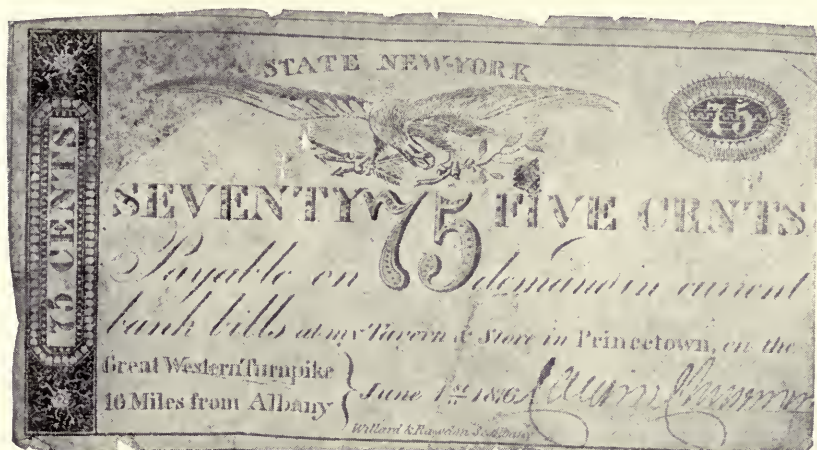 STATE NEW-YORK
75
75 CENTS
SEVENTY 75 FIVE CENTS
Payable on demand in current
bank bills at my Tavern & Store in Princetown, on the
Great Western Turnpike
10 Miles from Albany
June 1st
Willard & Rawdon Sc. Albany